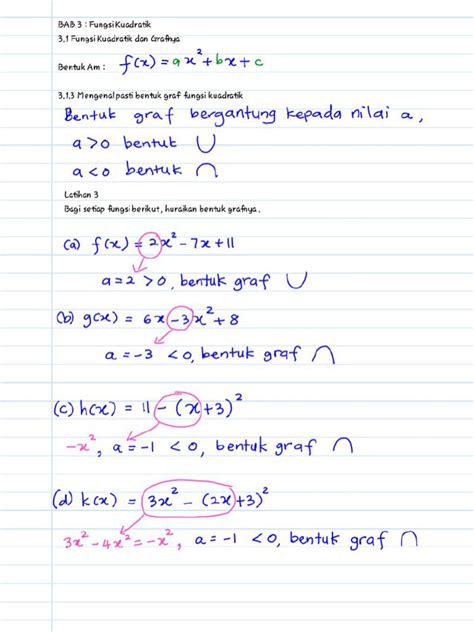 BAB 3 : Fungsi Kuadratik
3.1 Fungsi Kuadratik dan Grafnya
Bentuk Am : f(x) = ax² + bx + c
3.1.3 Mengenalpasti bentuk graf fungsi kuadratik
Bentuk graf bergantung kepada nilai a,
a>0 bentuk ∪
a<0 bentuk ∩
Latihan 3
Bagi setiap fungsi berikut, huraikan bentuk grafnya.
(a) f(x) = 2x² - 7x + 11
a = 2 > 0, bentuk graf ∪
(b) g(x) = 6x - 3x² + 8
a = -3 < 0, bentuk graf ∩
(c) h(x) = 11 - (x+3)²
-x², a = -1 < 0, bentuk graf ∩
(d) k(x) = 3x² - (2x+3)²
3x² - 4x² = -x², a = -1 < 0, bentuk graf ∩